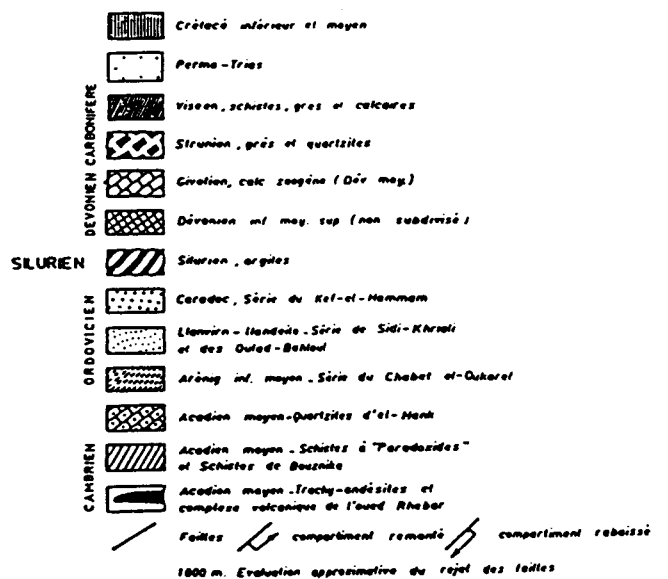 Crétacé inférieur et moyen
Permo-Trias
DÉVONIEN CARBONIFERE
Viséen, schistes, gres et calcaires
Strunien, grés et quartzites
Givetien, calc zoogène (Dév moy.)
Dévonien inf moy. sup (non subdivisé)
SILURIEN
Silurien, argiles
ORDOVICIEN
Caradoc, Série du Kef-el-Hammam
Llanvirn-llandeilo-Série de Sidi-Khrsali
et des Ouled-Bahloul
Arénig inf. moyen-Série du Chabet el-Oukaref
CAMBRIEN
Acadien moyen-Quartzites d'el-Hank
Acadien moyen-Schistes à "Paradoxides"
et Schistes de Bouznika
Acadien moyen-Trachy-andésites et
complexe volcanique de l'oued Rhebar
Failles compartiment remonté compartiment rabaissé
1800 m. Evaluation approximative du rejet des failles